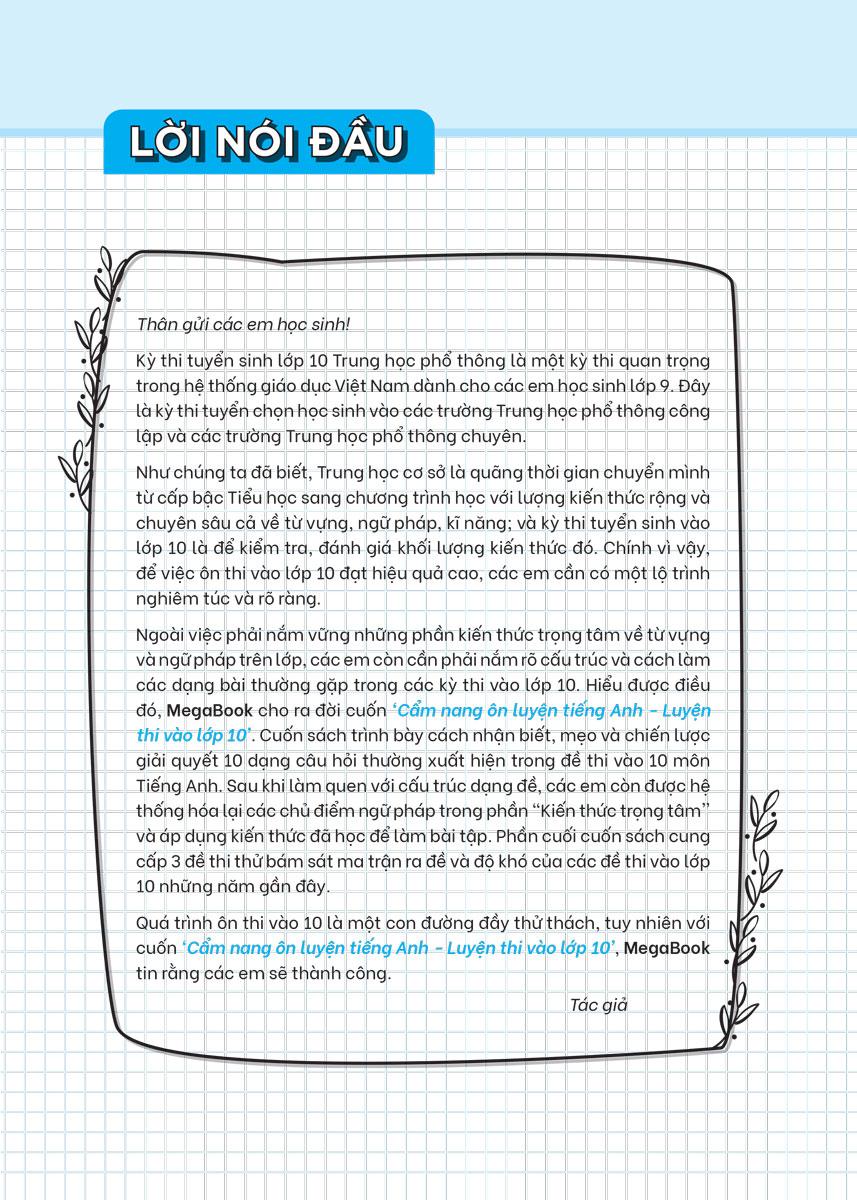 LỜI NÓI ĐẦU
Thân gửi các em học sinh!
Kỳ thi tuyển sinh lớp 10 Trung học phổ thông là một kỳ thi quan trọng
trong hệ thống giáo dục Việt Nam dành cho các em học sinh lớp 9. Đây
là kỳ thi tuyển chọn học sinh vào các trường Trung học phổ thông công
lập và các trường Trung học phổ thông chuyên.
Như chúng ta đã biết, Trung học cơ sở là quãng thời gian chuyển mình
từ cấp bậc Tiểu học sang chương trình học với lượng kiến thức rộng và
chuyên sâu cả về từ vựng, ngữ pháp, kĩ năng; và kỳ thi tuyển sinh vào
lớp 10 là để kiểm tra, đánh giá khối lượng kiến thức đó. Chính vì vậy,
để việc ôn thi vào lớp 10 đạt hiệu quả cao, các em cần có một lộ trình
nghiêm túc và rõ ràng.
Ngoài việc phải nắm vững những phần kiến thức trọng tâm về từ vựng
và ngữ pháp trên lớp, các em còn cần phải nắm rõ cấu trúc và cách làm
các dạng bài thường gặp trong các kỳ thi vào lớp 10. Hiểu được điều
đó, MegaBook cho ra đời cuốn ‘Cẩm nang ôn luyện tiếng Anh – Luyện
thi vào lớp 10’. Cuốn sách trình bày cách nhận biết, mẹo và chiến lược
giải quyết 10 dạng câu hỏi thường xuất hiện trong đề thi vào 10 môn
Tiếng Anh. Sau khi làm quen với cấu trúc dạng đề, các em còn được hệ
thống hóa lại các chủ điểm ngữ pháp trong phần “Kiến thức trọng tâm”
và áp dụng kiến thức đã học để làm bài tập. Phần cuối cuốn sách cung
cấp 3 đề thi thử bám sát ma trận ra đề và độ khó của các đề thi vào lớp
10 những năm gần đây.
Quá trình ôn thi vào 10 là một con đường đầy thử thách, tuy nhiên với
cuốn ‘Cẩm nang ôn luyện tiếng Anh – Luyện thi vào lớp 10’, MegaBook
tin rằng các em sẽ thành công.
Tác giả